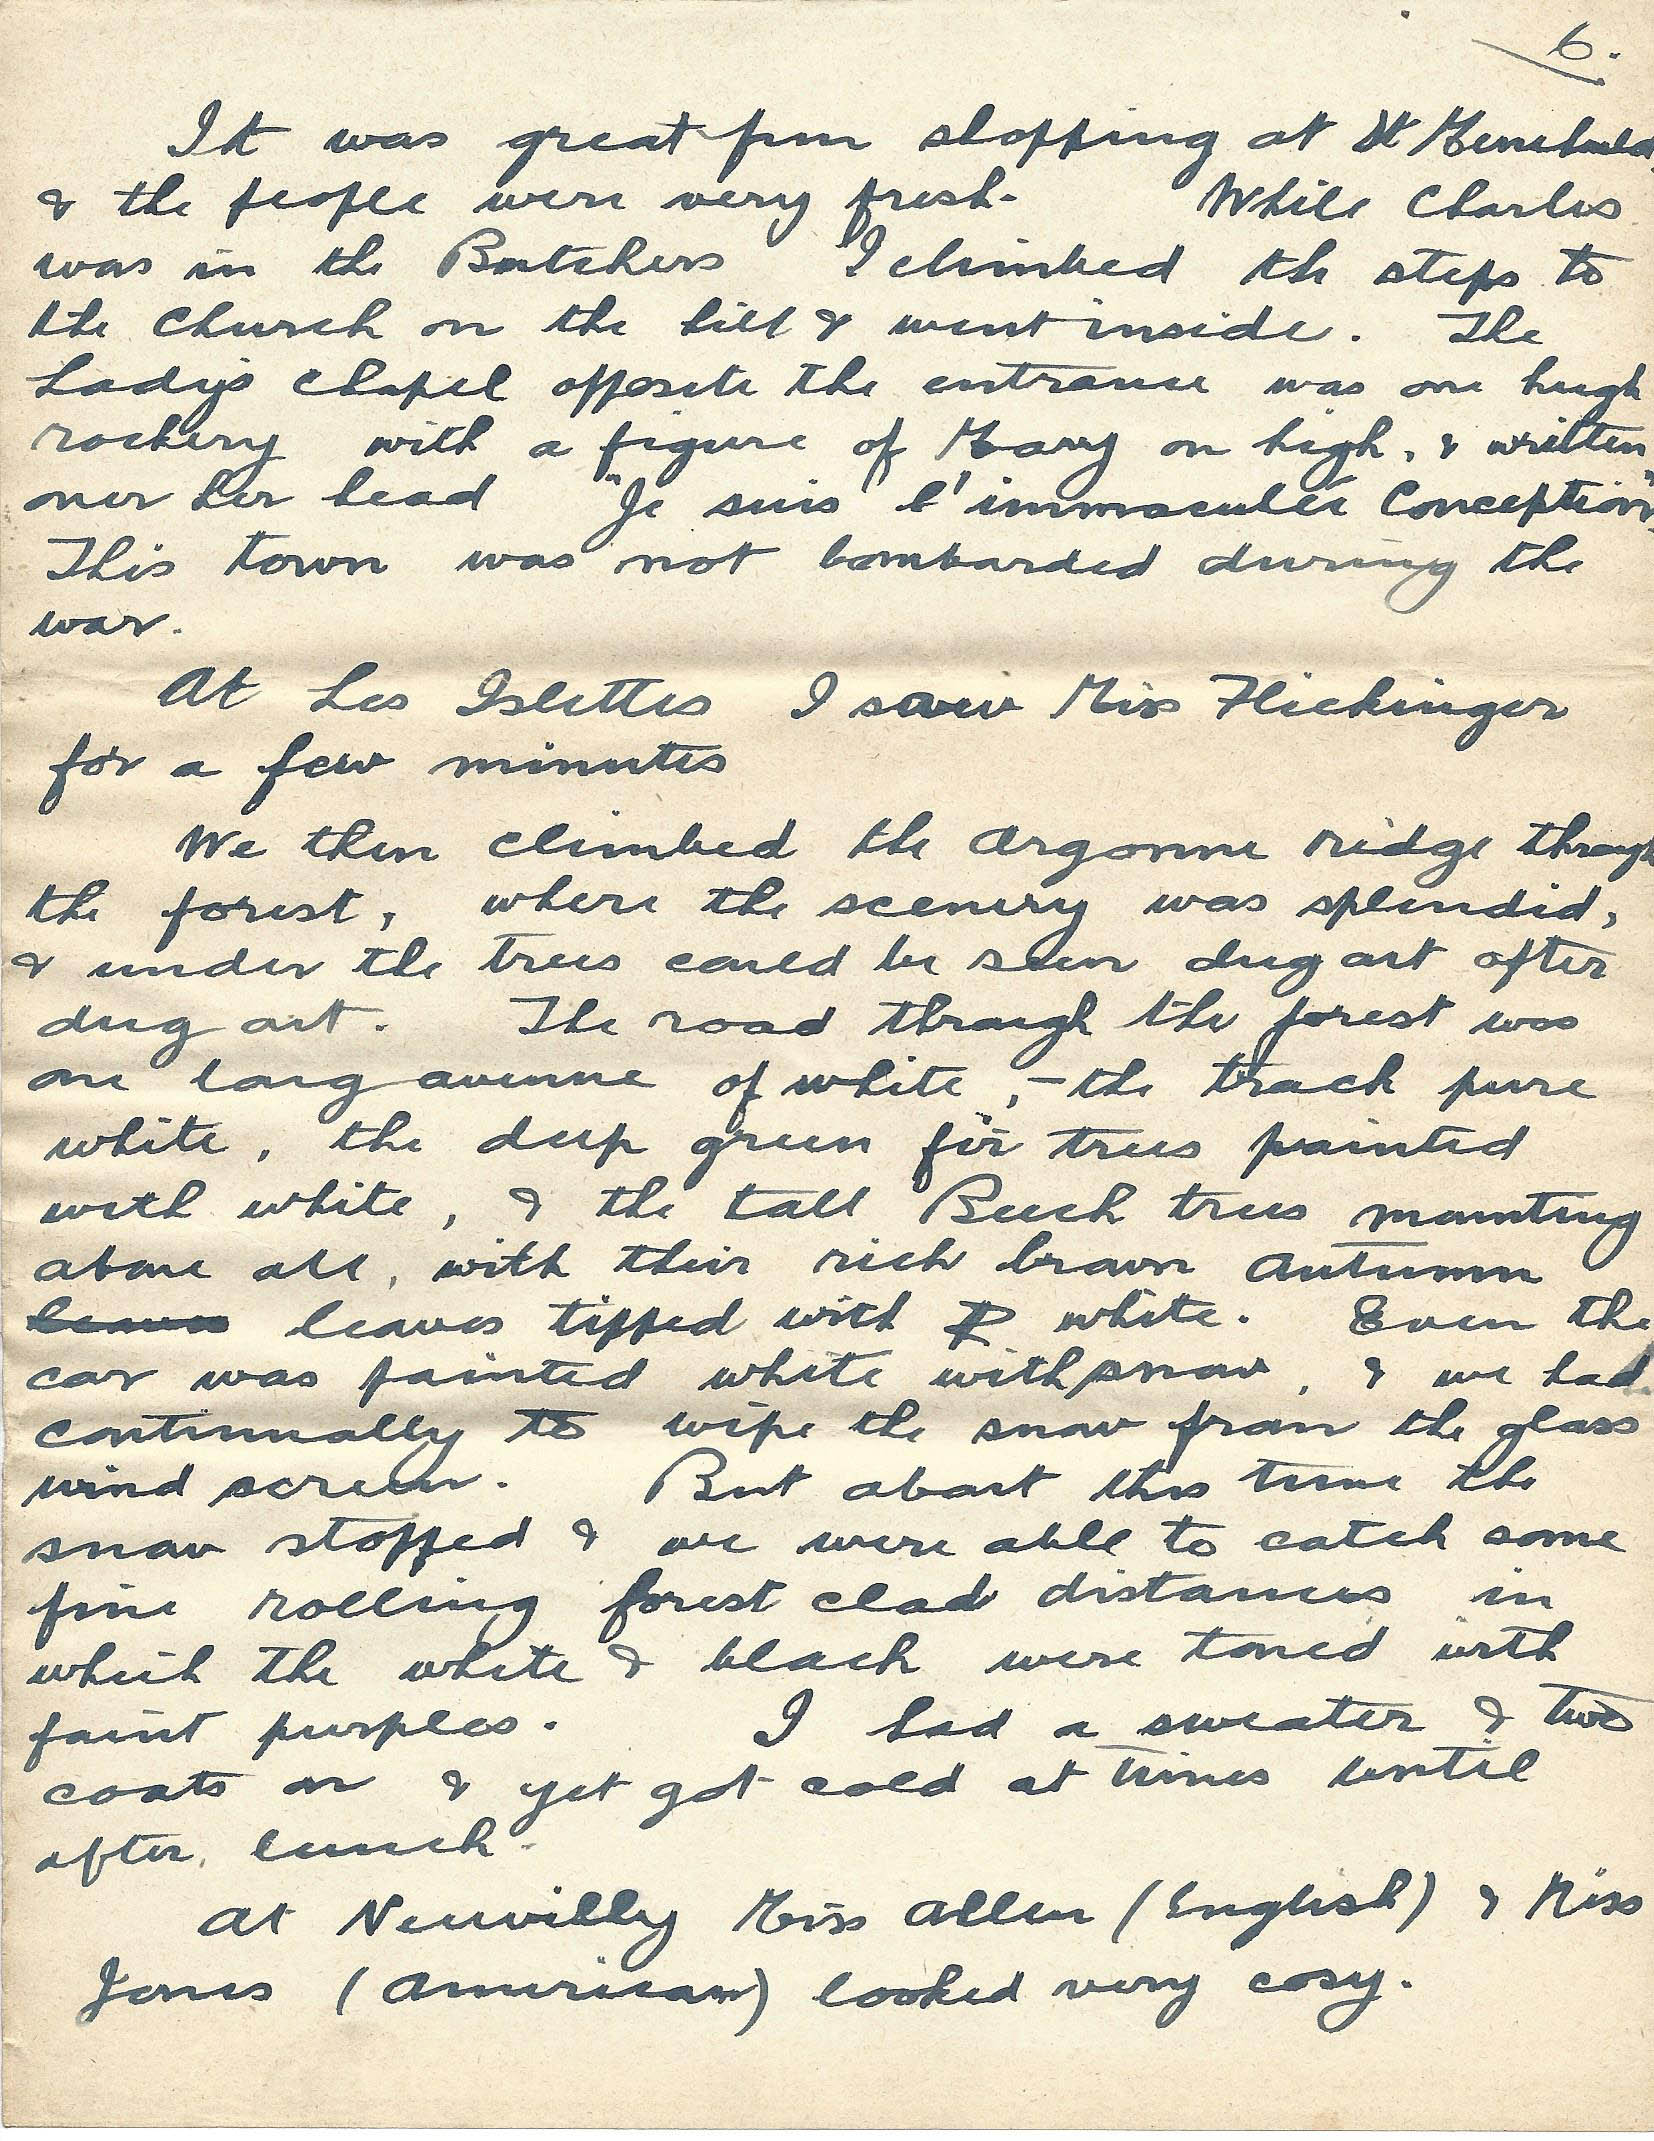 6.
It was great fun shopping at St Menehould,
& the people were very fresh. While Charles
was in the Butchers I climbed the steps to
the Church on the hill & went inside. The
Lady's Chapel opposite the entrance was one hugh
rockery with a figure of Mary on high, & written
over her head "Je suis l'immaculée Conception".
This town was not bombarded during the
war.
At Les Islettes I saw Miss Flickinger
for a few minutes
We then climbed the Argonne ridge through
the forest, where the scenery was splendid,
& under the trees could be seen dug out after
dug out. The road through the forest was
one long avenue of white, – the track pure
white, the deep green fir trees painted
with white, & the tall Beech trees mounting
above all, with their rich brown Autumn
leaves leaves tipped with white. Even the
car was painted white with snow, & we had
continually to wipe the snow from the glass
wind screen. But about this time the
snow stopped & we were able to catch some
fine rolling forest clad distances in
which the white & black were toned with
faint purples. I had a sweater & two
coats on & yet got cold at times until
after lunch.
At Neuvilly Miss Allen (English) & Miss
Jones (American) looked very cosy.